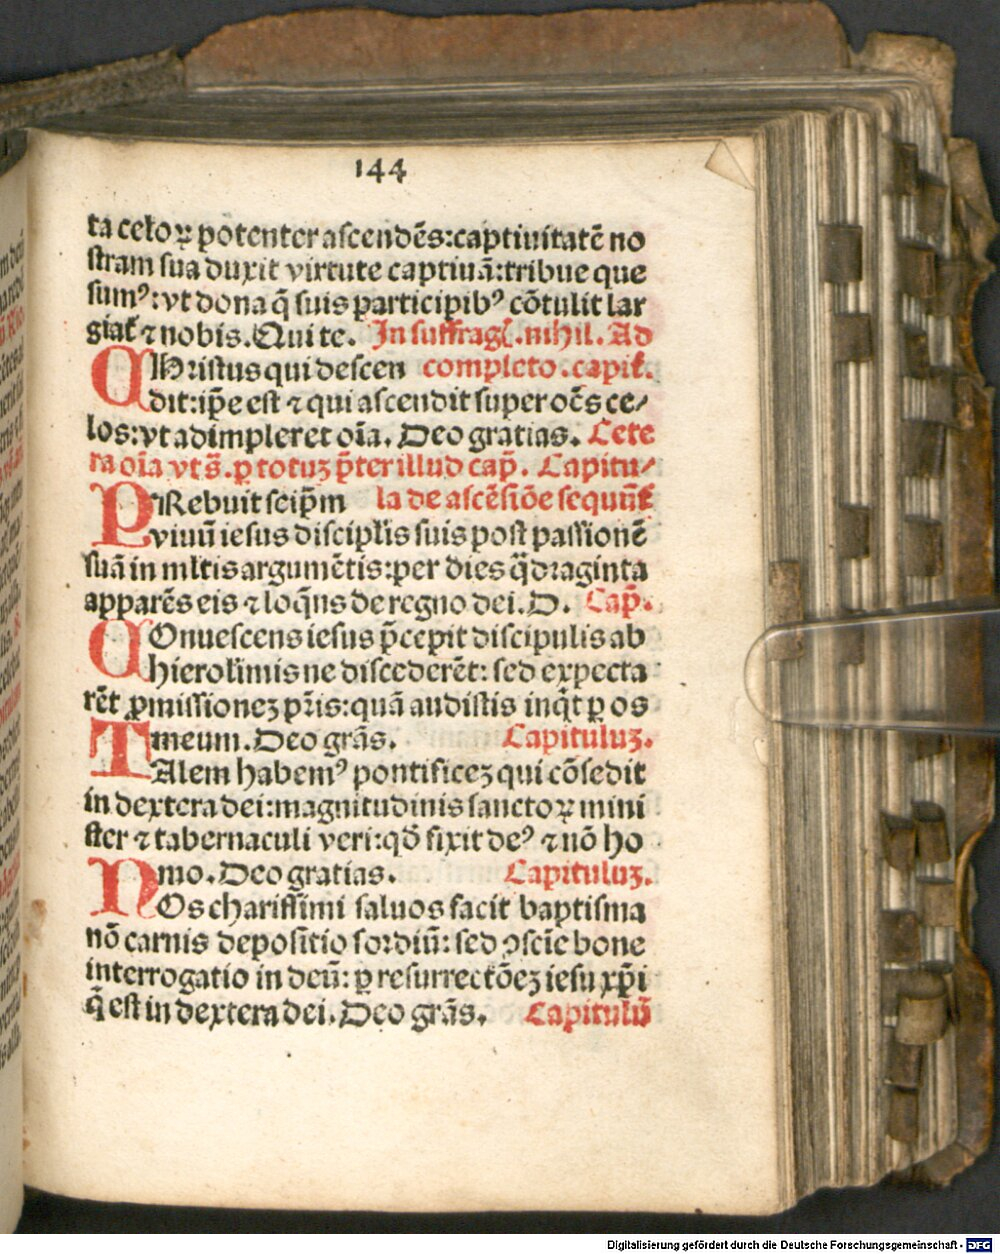 144
ta celoꝝ potenter ascendēs:captiuitatē no
stram sua duxit virtute captiuā:tribue que
sumꝰ:vt dona q̄ suis participibꝰ cōtulit lar
giat̄ ⁊ nobis.Qui te. In suffraḡ.nihil. Ad
CHristus qui descen completo.capit̄.
dit:ip̄e est ⁊ qui ascendit super oēs ce/
los:vt adimpleret oīa. Deo gratias. Cete
ra oīa vt s̄. ꝑ totuꝫ p̄ter illud cap̄. Capitu/
PRebuit seip̄m la de ascēsiōe sequūt̄
viuū iesus discipl̄is suis post passionē
suā in ml̄tis argumētis:per dies q̈draginta
apparēs eis ⁊ loq̄ns de regno dei.D. Cap̄.
COnuescens iesus p̄cepit discipulis ab
hierosolimis ne discederēt: sed expecta
rēt ꝓmissioneꝫ pr̄is:quā audistis inq̇t ꝑ os
meum.Deo grās. Capituluꝫ.
TAlem habemꝰ pontificeꝫ qui cōsedit
in dextera dei:magnitudinis sanctoꝝ mini
ster ⁊ tabernaculi veri:qd̄ fixit deꝰ ⁊ nō ho
mo.Deo gratias. Capituluꝫ.
NOs charissimi saluos facit baptisma
nō carnis depositio sordiū: sed ꝯsciē bone
interrogatio in deū: ꝑ resurrectōeꝫ iesu xp̄i
q̄ est in dextera dei.Deo grās. Capitulū
Digitalisierung gefördert durch die Deutsche Forschungsgemeinschaft - DFG